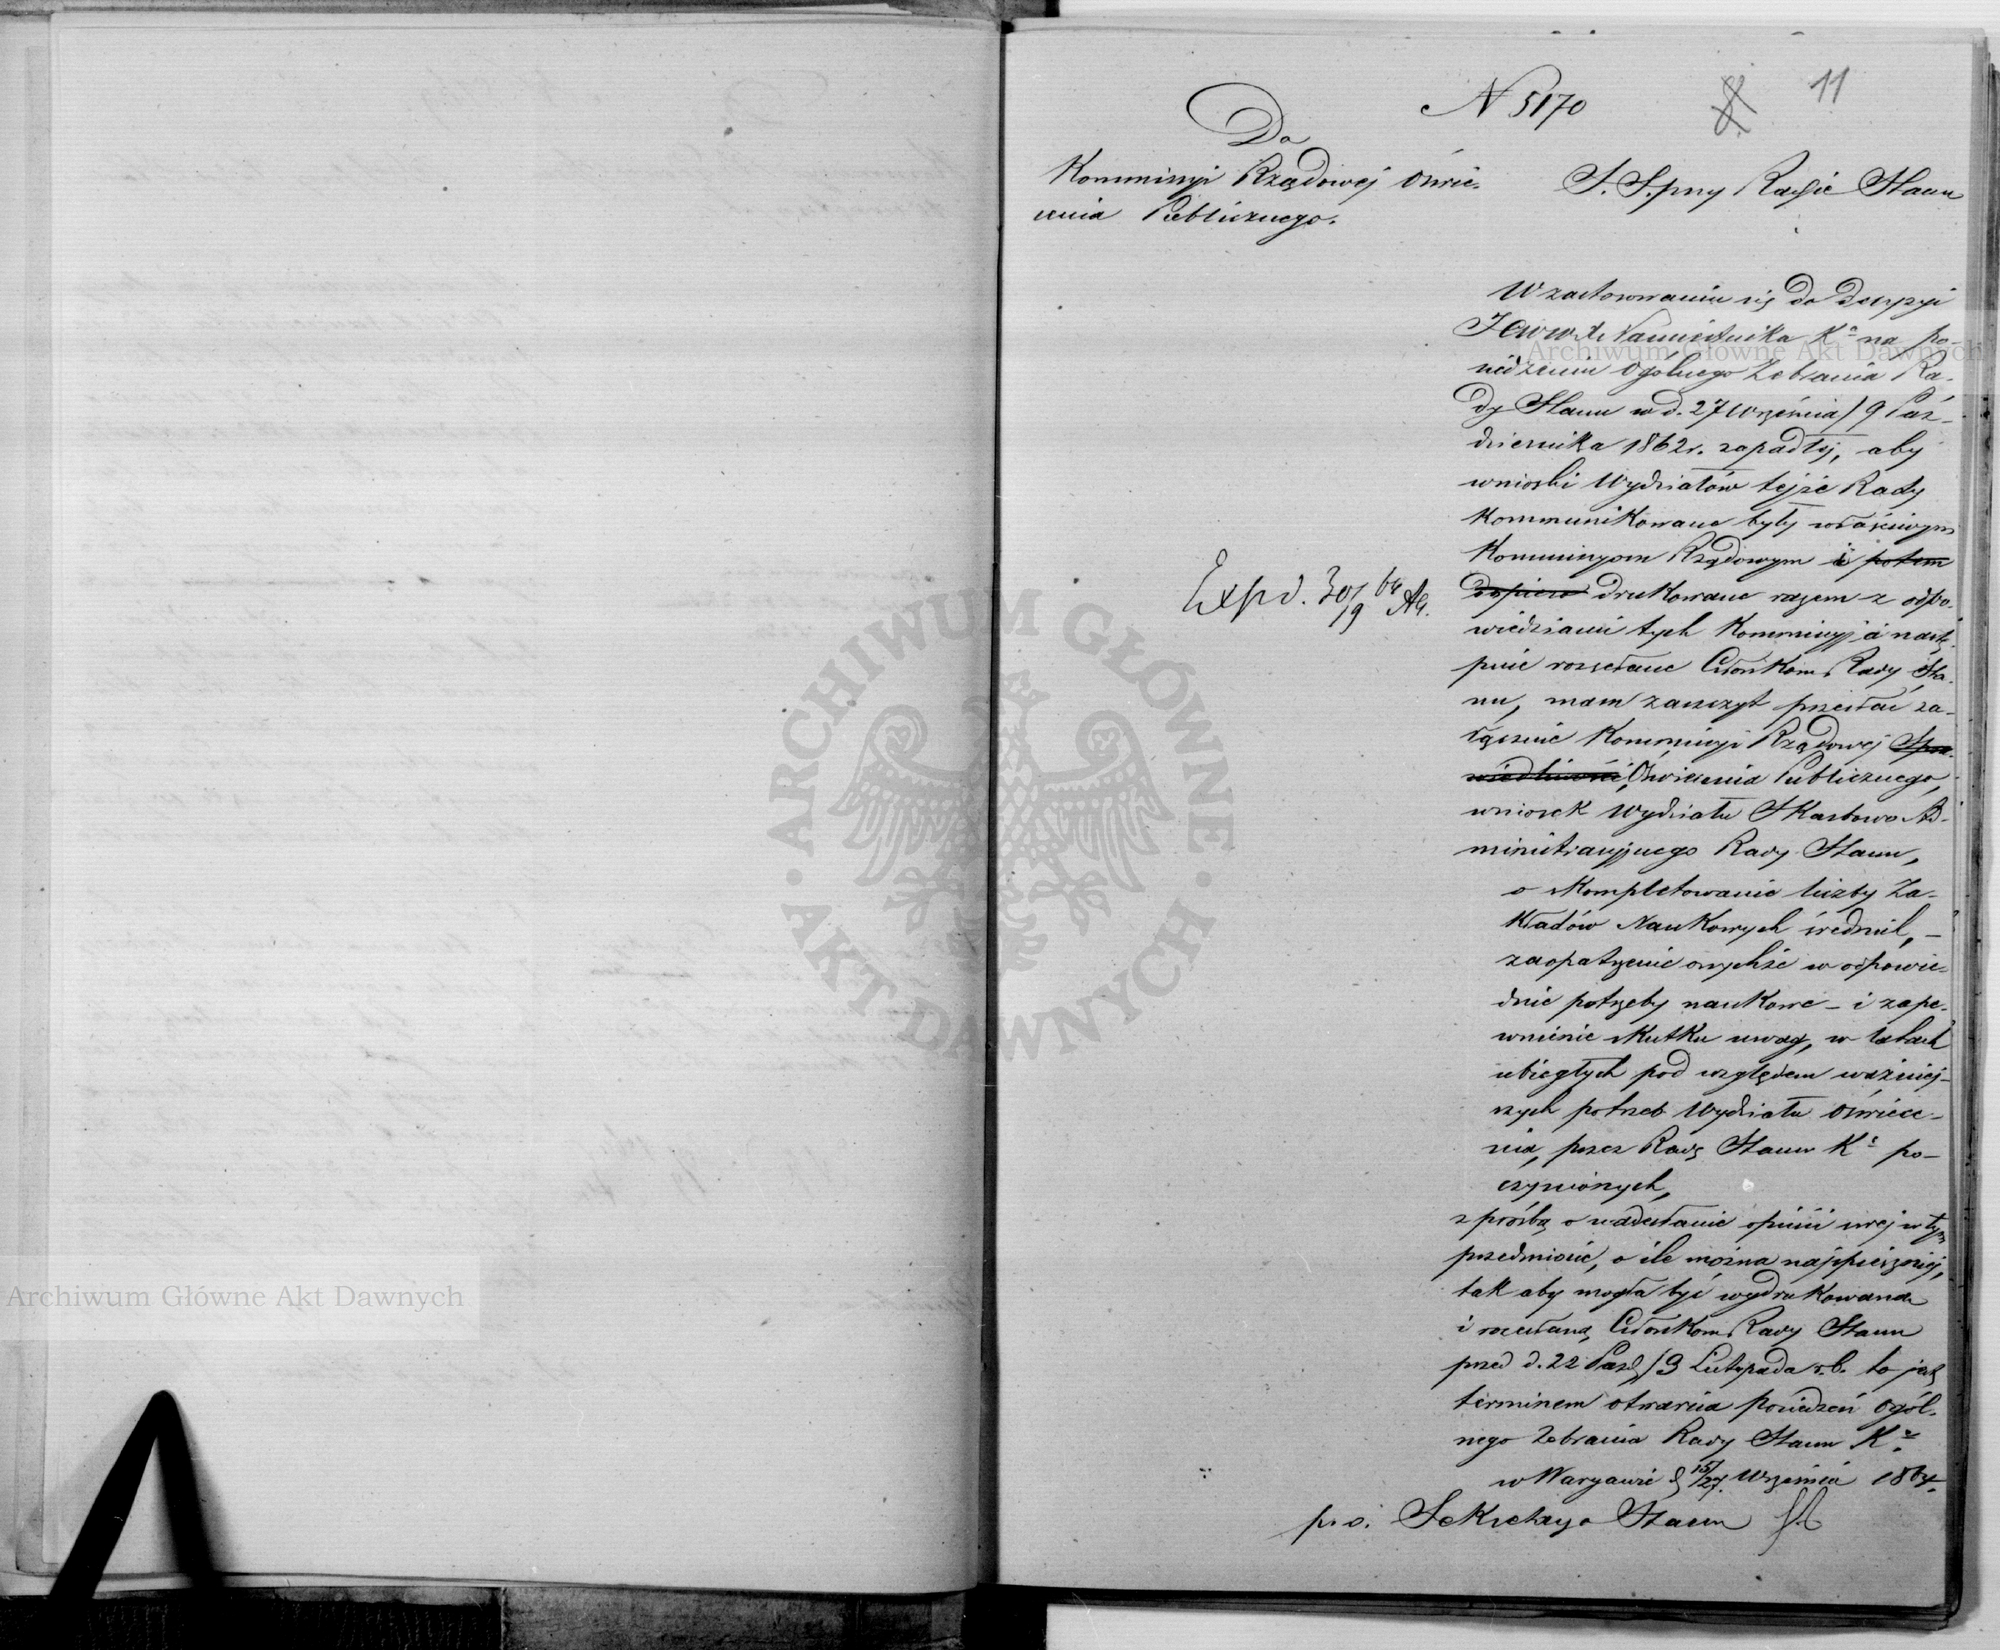 N 5170
11
Do
Kommissyi Rządowej Oświe-
cenia Publicznego.
Radzie Stanu
W zastosowaniu się do decyzyi
JO Namiestnika Kа na po-
siedzeniu Ogólnego Zebrania Ra-
dy Stanu w d. 27 Września / 9 Paź-
dziernika 1862 r. zapadłej, aby
wnioski Wydziałów tejże Rady
kommunikowane były właściwym
Kommissyom Rządowym i potem
dopiero drukowane razem z odpo-
wiedziami tych Kommissyj a nastę-
pnie rozsełane Członkom Rady Sta-
nu, mam zaszczyt przesłać za-
łącznie Kommissyi Rządowej Spra-
wiedliwości, Oświecenia Publicznego,
wniosek Wydziału Skarbowo Ad-
ministracyjnego Rady Stanu,
o skompletowanie liczby Za-
kładów Naukowych średnich, –
zaopatrzenie onychże w odpowie-
dnie potrzeby naukowe – i zape-
wnienie skutku uwag, w latach
ubiegłych pod względem ważniej-
szych potrzeb Wydziału Oświece-
nia, przez Radę Stanu Kа po-
czynionych,
z prośbą o nadesłanie opinii swej w tym
przedmiocie, o ile można najspieszniej,
tak aby mogła być wydrukowana
i rozesłana Członkom Rady Stanu
przed d. 22 Paźd / 3 Listopada r. b. to jest
terminem otwarcia posiedzeń Ogól-
nego Zebrania Rady Stanu Kа.
w Warszawie d 15/27 Września 1864.
p. o. Sekretarza Stanu
Expd. 30/19
ARCHIWUM GŁÓWNE
· AKT DAWNYCH ·
Archiwum Główne Akt Dawnych
Archiwum Główne Akt Dawnych